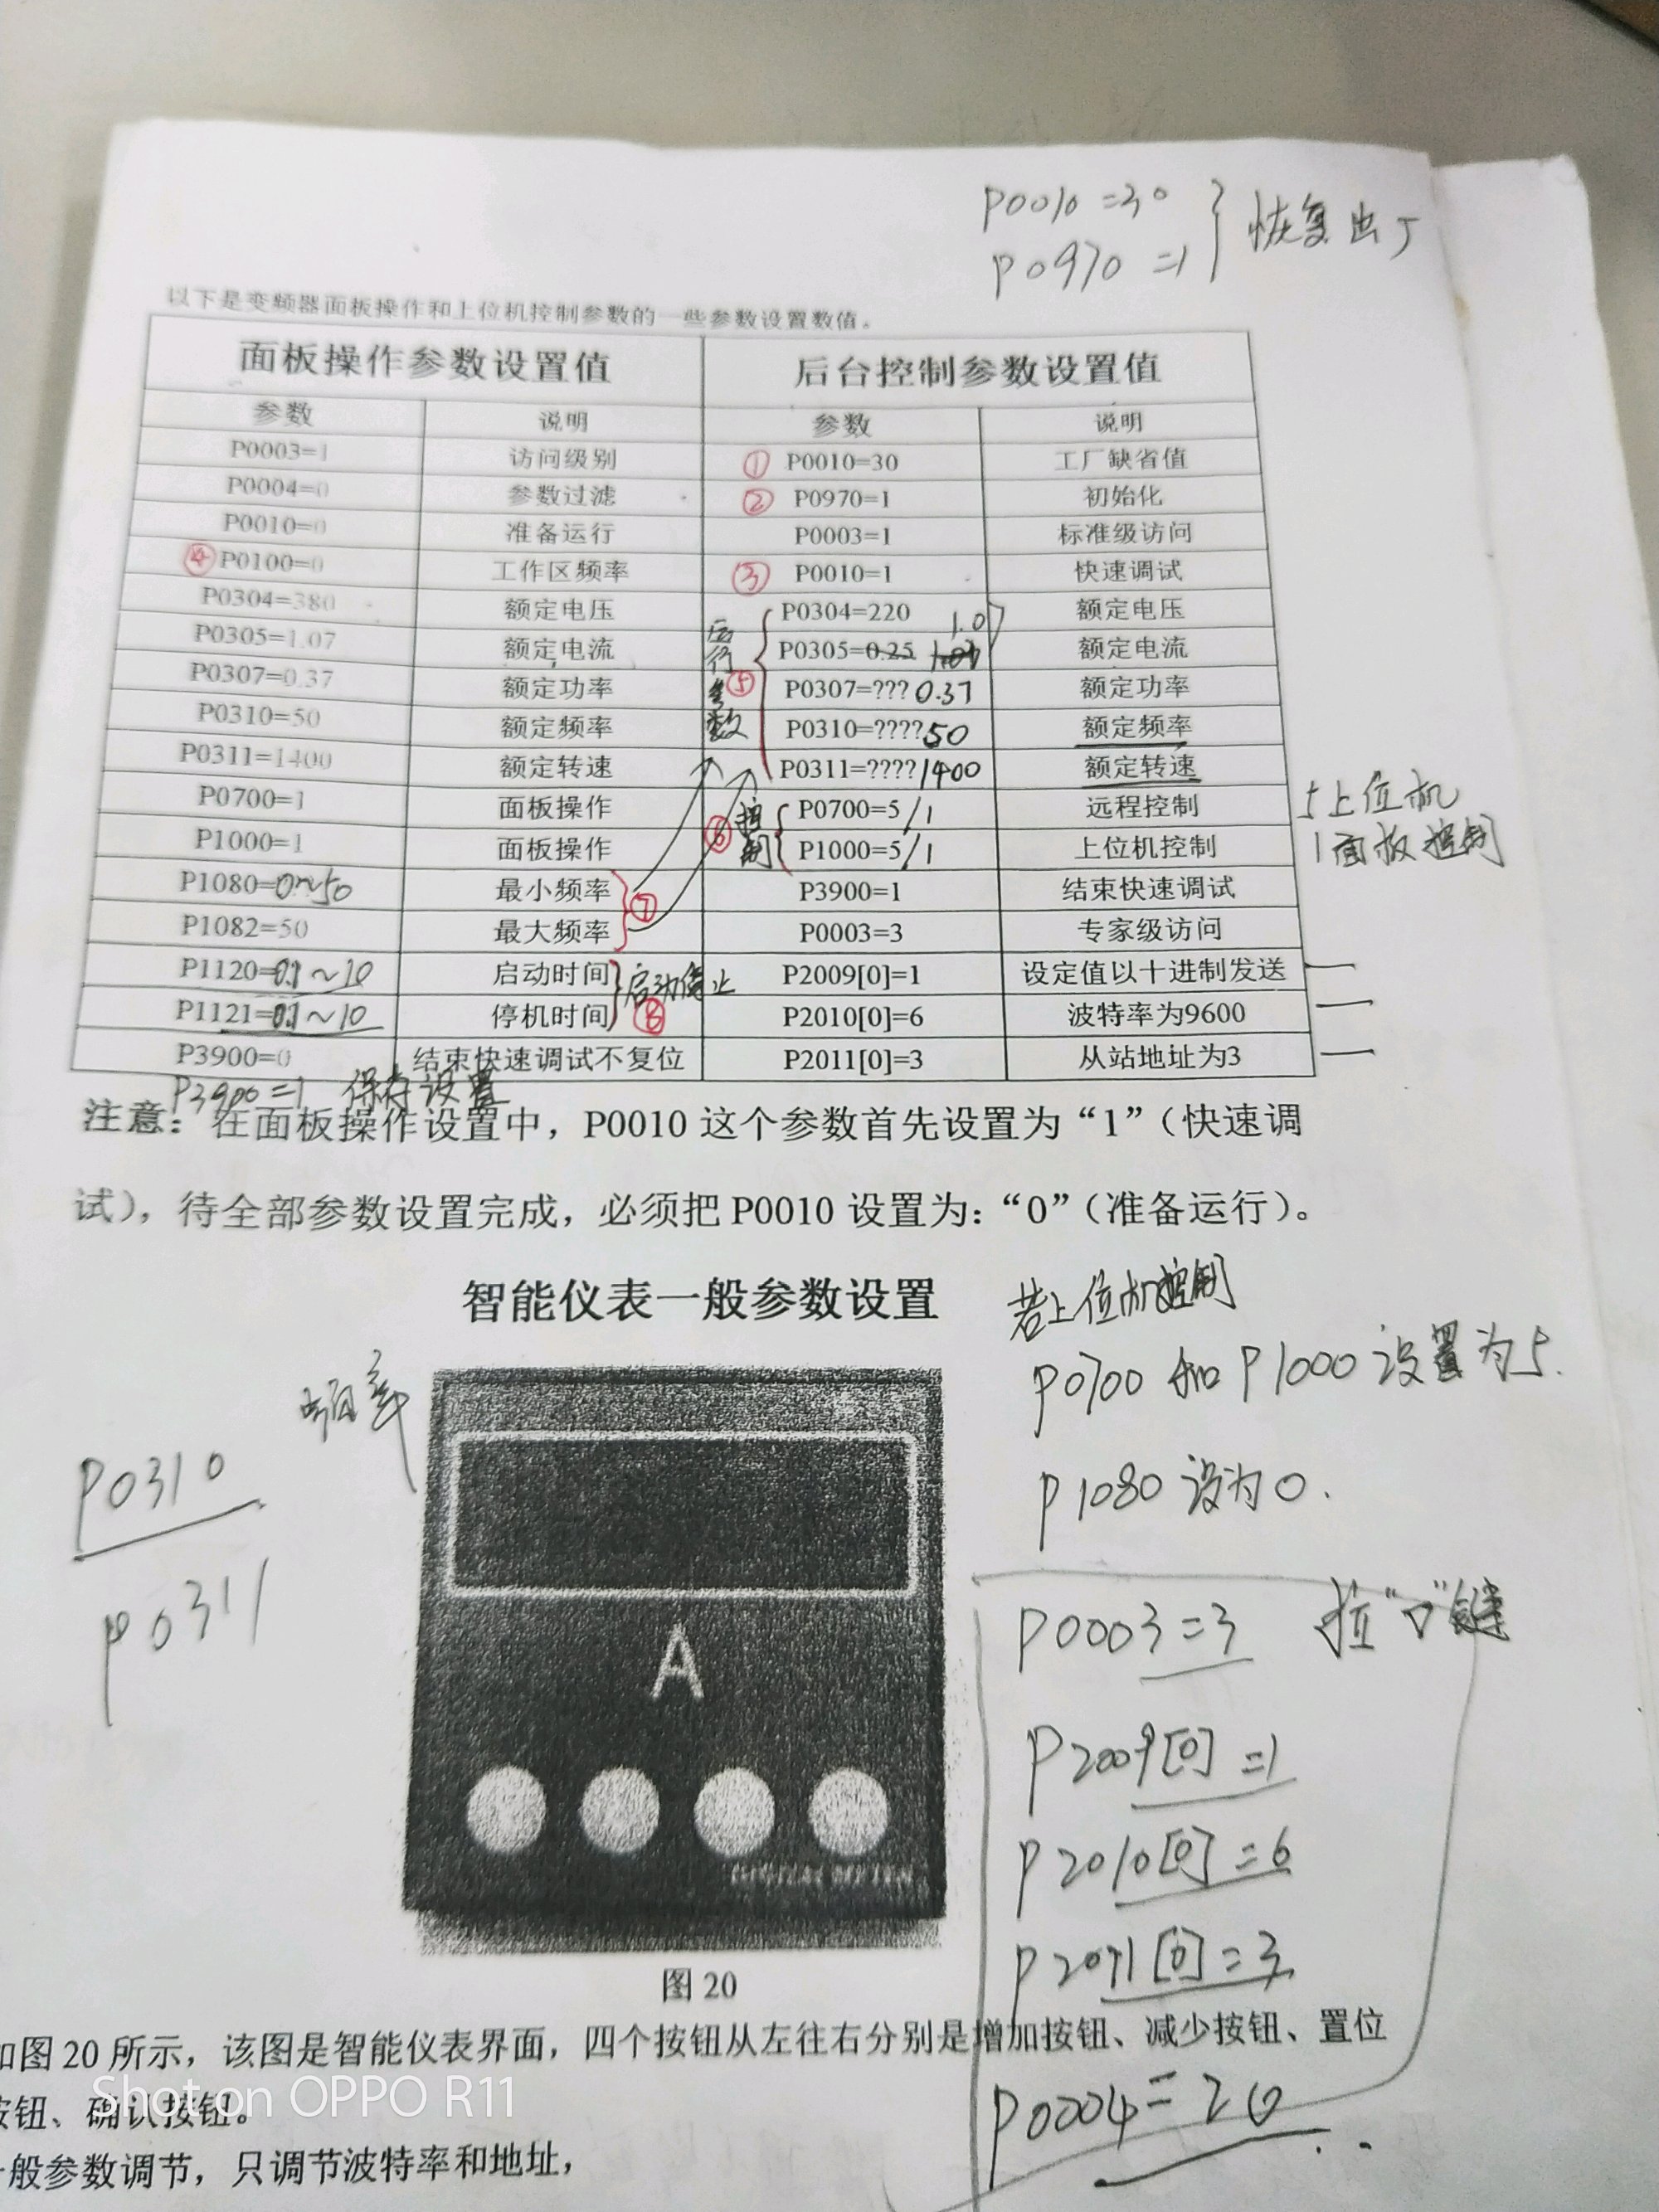 P0010=30
P0970=1 恢复出厂
以下是变频器面板操作和上位机控制参数的一些参数设置数值。
面板操作参数设置值 后台控制参数设置值
参数 说明 参数 说明
P0003=1 访问级别 ① P0010=30 工厂缺省值
P0004=0 参数过滤 ② P0970=1 初始化
P0010=0 准备运行 P0003=1 标准级访问
④ P0100=0 工作区频率 ③ P0010=1 快速调试
P0304=380 额定电压 P0304=220 额定电压
P0305=1.07 额定电流 P0305=0.25 1.07 1.0 额定电流
P0307=0.37 额定功率 ⑤ P0307=??? 0.37 额定功率
P0310=50 额定频率 P0310=???? 50 额定频率
P0311=1400 额定转速 P0311=???? 1400 额定转速
P0700=1 面板操作 P0700=5/1 远程控制 5上位机
P1000=1 面板操作 ⑥ 控制 P1000=5/1 上位机控制 1面板控制
P1080=0~50 最小频率 ⑦ P3900=1 结束快速调试
P1082=50 最大频率 P0003=3 专家级访问
P1120=0.1~10 启动时间 启动停止 P2009[0]=1 设定值以十进制发送
P1121=0.1~10 停机时间 ⑧ P2010[0]=6 波特率为9600
P3900=0 结束快速调试不复位 P2011[0]=3 从站地址为3
P3900=1 保存设置
注意：在面板操作设置中，P0010 这个参数首先设置为“1”（快速调
试），待全部参数设置完成，必须把 P0010 设置为：“0”（准备运行）。
智能仪表一般参数设置
若上位机控制
P0700 和 P1000 设置为5.
P1080 设为0.
频率
P0310
P0311
A
P0003=3
P2009[0]=1
P2010[0]=6
P2011[0]=3
图 20
如图 20 所示，该图是智能仪表界面，四个按钮从左往右分别是增加按钮、减少按钮、置位
按钮、确认按钮。
P0004=20
一般参数调节，只调节波特率和地址，
Shot on OPPO R11